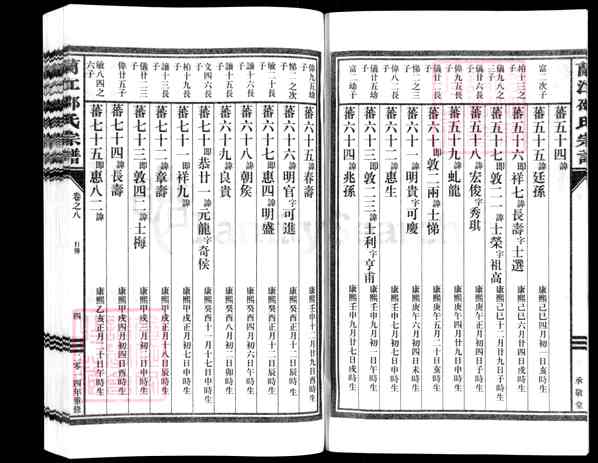 蘭江邵氏宗譜
承敬堂
富二次子
蕃五十四諱廷孫
康熙己巳四月初一日亥時生
儀廿五次子
蕃五十五
蕃五十六即祥七諱長壽字士選
康熙己巳六月廿四日戌時生
儀九八之子
蕃五十七即敦二一諱士榮字祖高
康熙己巳十二月廿九日子時生
儀廿二長子
蕃五十八諱宏俊字秀琪
康熙庚午正月初四日子時生
偉九五長子
蕃五十九諱虬龍
康熙庚午四月廿九日申時生
蕃六十即敦二兩諱士悌
康熙庚午五月二十日亥時生
蕃六十一即明貴諱可慶
康熙庚午六月初四日未時生
偉八二長子
蕃六十二諱惠生
康熙壬申七月初七日申時生
儀十五之子
蕃六十三即敦二三諱士利字亨甫
康熙壬申九月初一日丑時生
富二幼子
蕃六十四諱兆孫
康熙壬申九月廿七日戌時生
偉九五幼子
蕃六十五諱春壽
康熙壬申十二月廿九日丑時生
悌二之次子
蕃六十六即明官諱可進
康熙癸酉正月十二日辰時生
敏二十長子
蕃六十七即惠四諱明盛
康熙癸酉正月十二日辰時生
讓十六長子
蕃六十八諱朝矦
康熙癸酉四月初六日午時生
讓十五長子
蕃六十九諱良貴
康熙癸酉八月初一日卯時生
文四六長子
蕃七十即恭廿一諱元龍字奇侯
康熙癸酉十一月十七日申時生
柏十九長子
蕃七十一即祥九諱
康熙甲戌正月初七日申時生
讓十三長子
蕃七十二諱章壽
康熙甲戌正月十八日辰時生
儀二二三子
蕃七十三即敦四二諱士梅
康熙甲戌三月初二日申時生
偉廿五子
蕃七十四諱長壽
康熙甲戌四月初四日酉時生
敏八四之六子
蕃七十五即惠八二諱
康熙乙亥正月二十日午時生
蘭江邵氏宗譜
卷之八
行傳
四
二零一四年重修